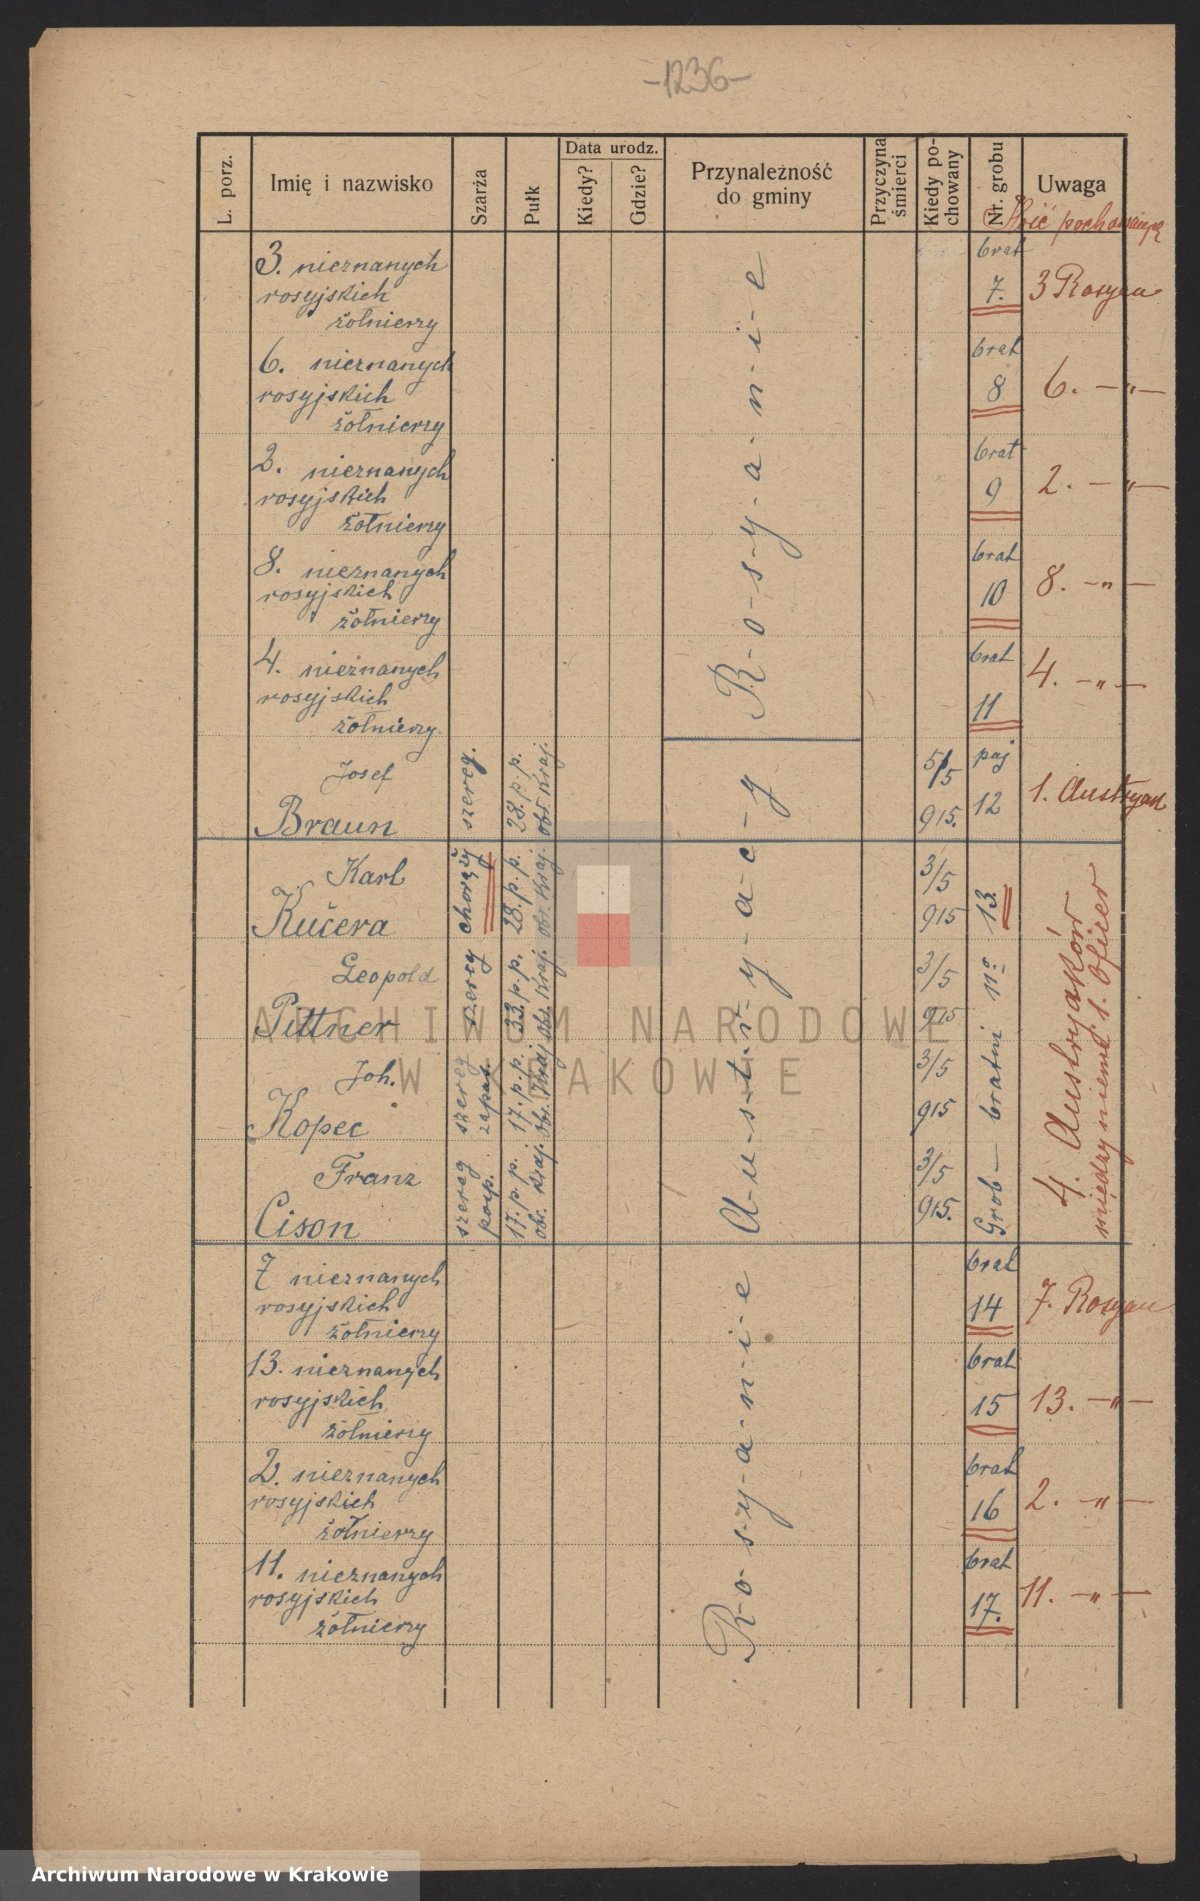 -1236-
L. porz.
Imię i nazwisko
Szarża
Pułk
Data urodz.
Kiedy?
Gdzie?
Przynależność
do gminy
Przyczyna
śmierci
Kiedy po-
chowany
Nr. grobu
Uwaga
Ilość
3. nieznanych
rosyjskich
żołnierzy
brat
7.
3 Rosyan
6. nieznanych
rosyjskich
żołnierzy
brat
8
6. -"-
2. nieznanych
rosyjskich
żołnierzy
brat
9
2. -"-
8. nieznanych
rosyjskich
żołnierzy
brat
10
8. -"-
4. nieznanych
rosyjskich
żołnierzy
brat
11
4. -"-
R-o-s-y-a-n-i-e
Josef
Braun
szereg.
28. p. p.
obr. Kraj.
5/5
915.
poj
12
1. Austryak
Karl
Kučera
chorąży
28. p. p.
obr. Kraj.
3/5
915
Leopold
Pittner
szereg
33. p. p.
obr. Kraj
3/5
915
Joh.
Kopec
szereg
zapas.
17. p. p.
obr. Kraj
3/5
915
Franz
Cison
szereg
posp.
17. p. p.
obr. Kraj.
3/5
915.
A-u-s-t-r-y-a-c-y
Grob - bratni nº 13.
4. Austryaków
między niemi 1. Oficer
7 nieznanych
rosyjskich
żołnierzy
brat
14
7. Rosyan
13. nieznanych
rosyjskich
żołnierzy
brat
15
13. -"-
2. nieznanych
rosyjskich
żołnierzy
brat
16
2. -"-
11. nieznanych
rosyjskich
żołnierzy
brat
17.
11. -"-
R-o-s-y-a-n-i-e
ARCHIWUM NARODOWE
W KRAKOWIE
Archiwum Narodowe w Krakowie